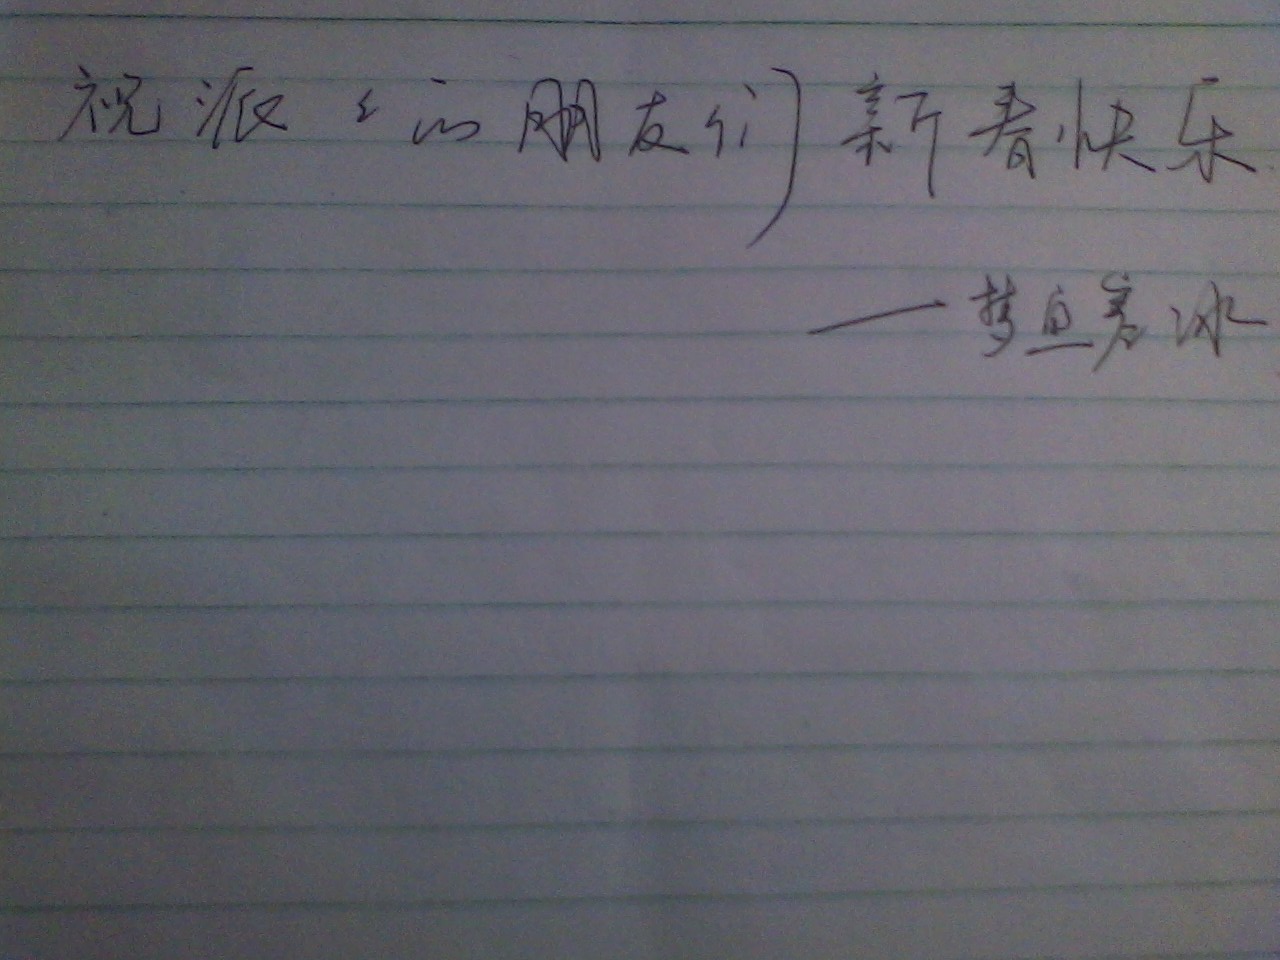 祝派派的朋友们新春快乐
——梦鱼君冰